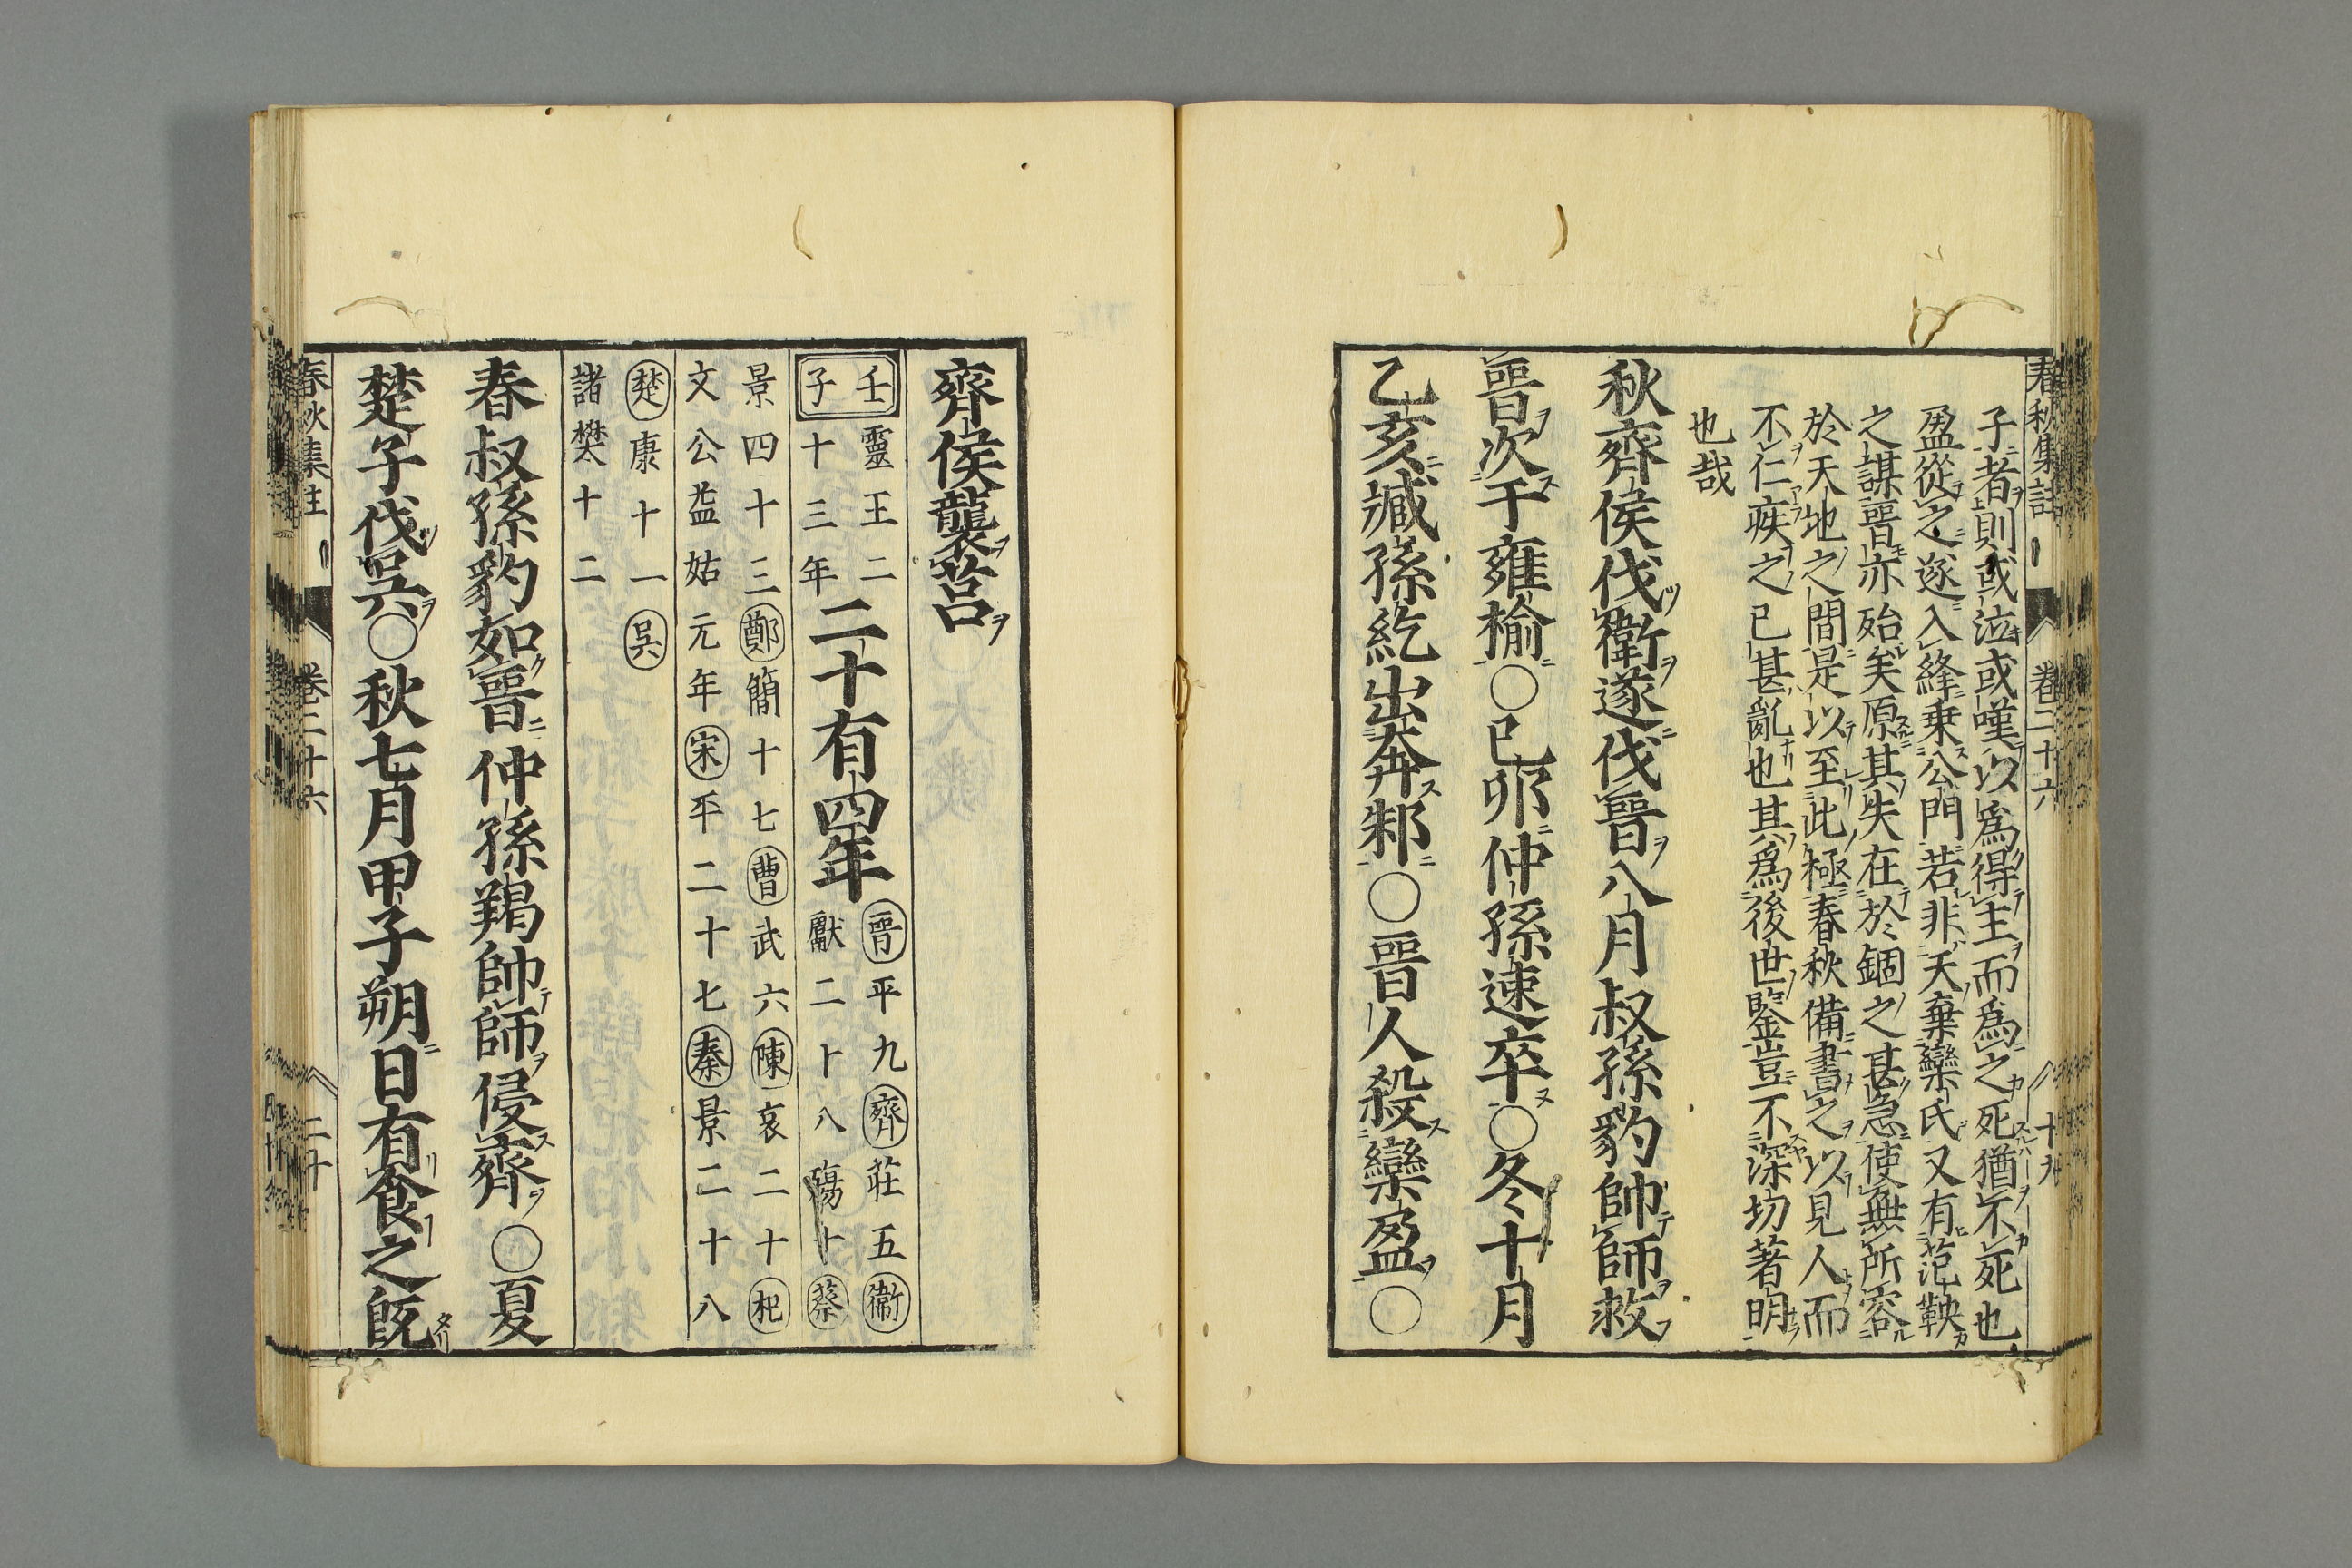 春秋集註 卷二十六 十九
子者則或泣或嘆以爲得主而爲之死猶不死也
盈從之遂入絳乗公門若非天棄欒氏又有范鞅
之謀晉亦殆矣原其失在於錮之甚急使無所容
於天地之間是以至此極春秋備書之以見人而
不仁疾之已甚亂也其爲後世鑒豈不深切著明
也哉
秋齊侯伐衛遂伐晉八月叔孫豹帥師救
晉次于雍榆〇己卯仲孫速卒〇冬十月
乙亥臧孫紇出奔邾〇晉人殺欒盈〇
齊侯襲莒
壬子 靈王二十三年 二十有四年 晉平九齊莊五衞獻二十八殤十蔡
景四十三鄭簡十七曹武六陳哀二十杞
文公益姑元年宋平二十七秦景二十八
楚康十一吳
諸樊十二
春叔孫豹如晉仲孫羯帥師侵齊〇夏
楚子伐吳〇秋七月甲子朔日有食之既
春秋集註 卷二十六 二十